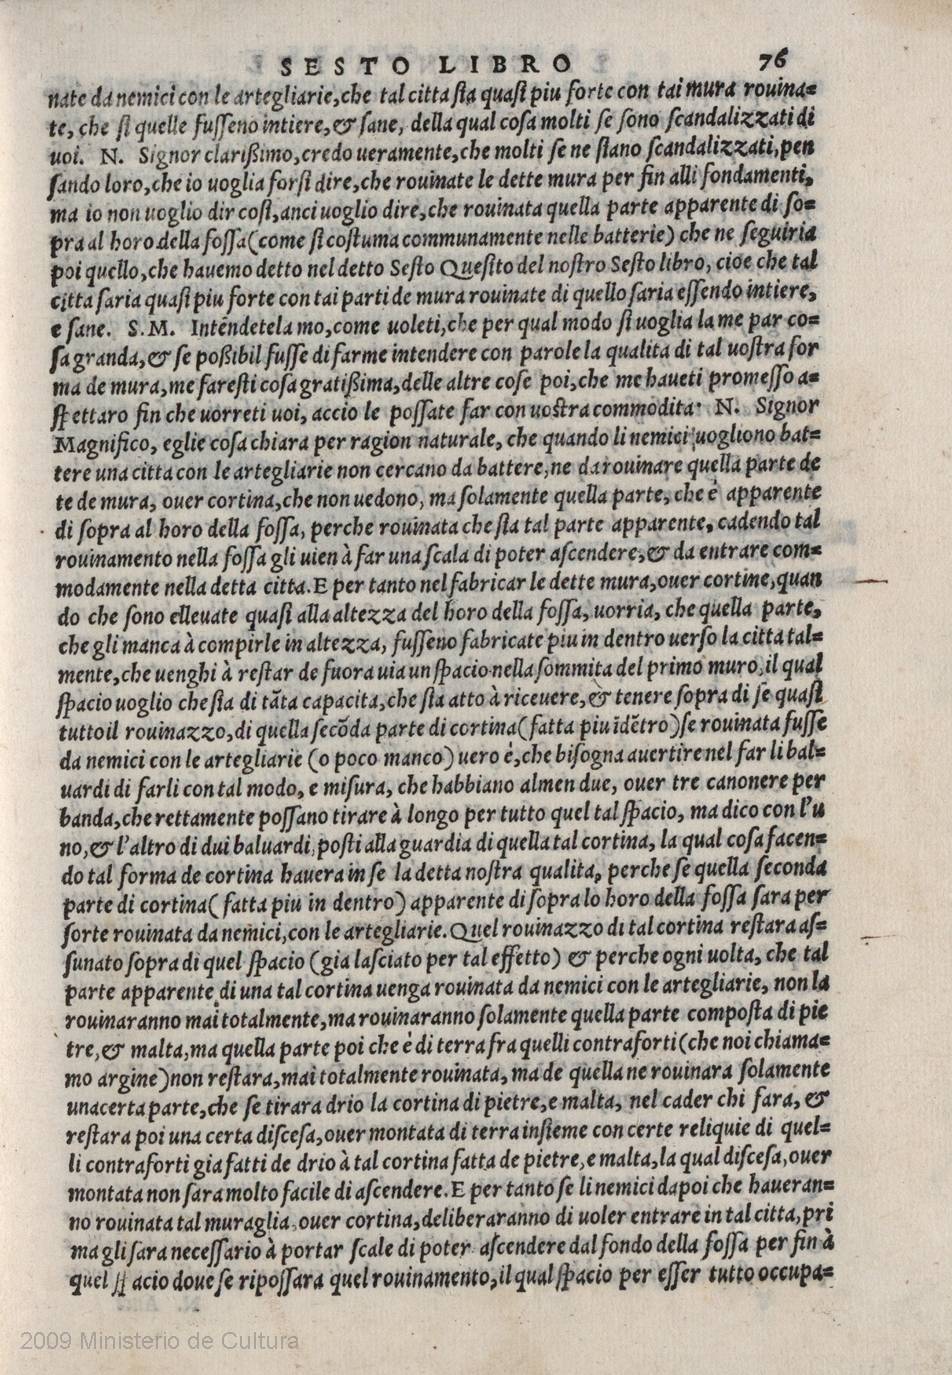 SESTO LIBRO 76
nate da nemici con le artegliarie, che tal citta sta quasi piu forte con tai mura rouina=
te, che si quelle fusseno intiere, & sane, della qual cosa molti se sono scandalizzati di
uoi. N. Signor clarißimo, credo ueramente, che molti se ne siano scandalizzati, pen
sando loro, che io uoglia forsi dire, che rouinate le dette mura per fin alli fondamenti,
ma io non uoglio dir cosi, anci uoglio dire, che rouinata quella parte apparente di so=
pra al horo della fossa (come si costuma communamente nelle batterie) che ne seguiria
poi quello, che hauemo detto nel detto Sesto Quesito del nostro Sesto libro, cioe che tal
citta saria quasi piu forte con tai parti de mura rouinate di quello saria essendo intiere,
e sane. S.M. Intēdetela mo, come uoleti, che per qual modo si uoglia la me par co=
sa granda, & se poßibil fusse di farme intendere con parole la qualita di tal uostra for
ma de mura, me faresti cosa gratißima, delle altre cose poi, che me haueti promesso a=
spettaro fin che uorreti uoi, accio le possate far con uostra commodita· N. Signor
Magnifico, eglie cosa chiara per ragion naturale, che quando li nemici uogliono bat=
tere una citta con le artegliarie non cercano da battere, ne da rouinare quella parte de
te de mura, ouer cortina, che non uedono, ma solamente quella parte, che è apparente
di sopra al horo della fossa, perche rouinata che sia tal parte apparente, cadendo tal
rouinamento nella fossa gli uien à far una scala di poter ascendere, & da entrare com=
modamente nella detta citta. E per tanto nel fabricar le dette mura, ouer cortine, quan
do che sono elleuate quasi alla altezza del horo della fossa, uorria, che quella parte,
che gli manca à compirle in altezza, fusseno fabricate piu in dentro uerso la citta tal=
mente, che uenghi à restar de fuora uia un spacio nella sommita del primo muro, il qual
spacio uoglio che sia di tāta capacita, che sia atto à riceuere, & tenere sopra di se quasi
tutto il rouinazzo, di quella secōda parte di cortina (fatta piu idētro) se rouinata fusse
da nemici con le artegliarie (o poco manco) uero è, che bisogna auertire nel far li bal=
uardi di farli con tal modo, e misura, che habbiano almen due, ouer tre canonere per
banda, che rettamente possano tirare à longo per tutto quel tal spacio, ma dico con l'u
no, & l'altro di dui baluardi, posti alla guardia di quella tal cortina, la qual cosa facen=
do tal forma de cortina hauera in se la detta nostra qualita, perche se quella seconda
parte di cortina (fatta piu in dentro) apparente di sopra lo horo della fossa sara per
sorte rouinata da nemici, con le artegliarie. Quel rouinazzo di tal cortina restara as=
sunato sopra di quel spacio (gia lasciato per tal effetto) & perche ogni uolta, che tal
parte apparente di una tal cortina uenga rouinata da nemici con le artegliarie, non la
rouinaranno mai totalmente, ma rouinaranno solamente quella parte composta di pie
tre, & malta, ma quella parte poi che è di terra fra quelli contraforti (che noi chiama=
mo argine) non restara, mai totalmente rouinata, ma de quella ne rouinara solamente
una certa parte, che se tirara drio la cortina di pietre, e malta, nel cader chi fara, &
restara poi una certa discesa, ouer montata di terra insieme con certe reliquie di quel=
li contraforti gia fatti de drio à tal cortina fatta de pietre, e malta, la qual discesa, ouer
montata non sara molto facile di ascendere. E per tanto se li nemici dapoi che haueran=
no rouinata tal muraglia, ouer cortina, deliberaranno di uoler entrare in tal citta, pri
ma gli sara necessario à portar scale di poter ascendere dal fondo della fossa per fin à
quel spacio doue se ripossara quel rouinamento, il qual spacio per esser tutto occupa=
2009 Ministerio de Cultura